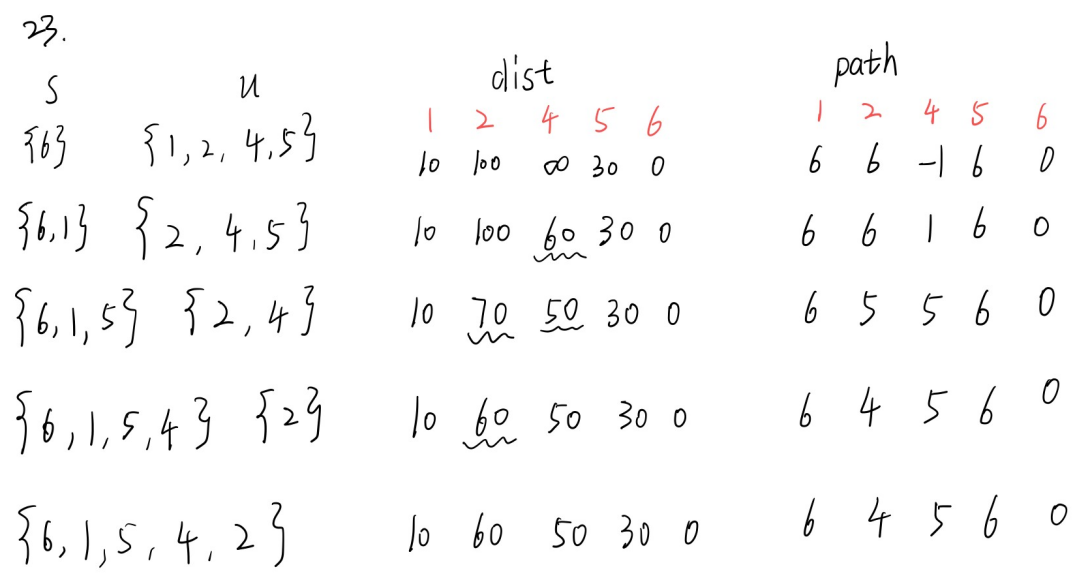 23.
S u dist path
1 2 4 5 6 1 2 4 5 6
{6} {1,2,4,5} 10 100 ∞ 30 0 6 6 -1 6 0
{6,1} {2,4,5} 10 100 60 30 0 6 6 1 6 0
{6,1,5} {2,4} 10 70 50 30 0 6 5 5 6 0
{6,1,5,4} {2} 10 60 50 30 0 6 4 5 6 0
{6,1,5,4,2} 10 60 50 30 0 6 4 5 6 0